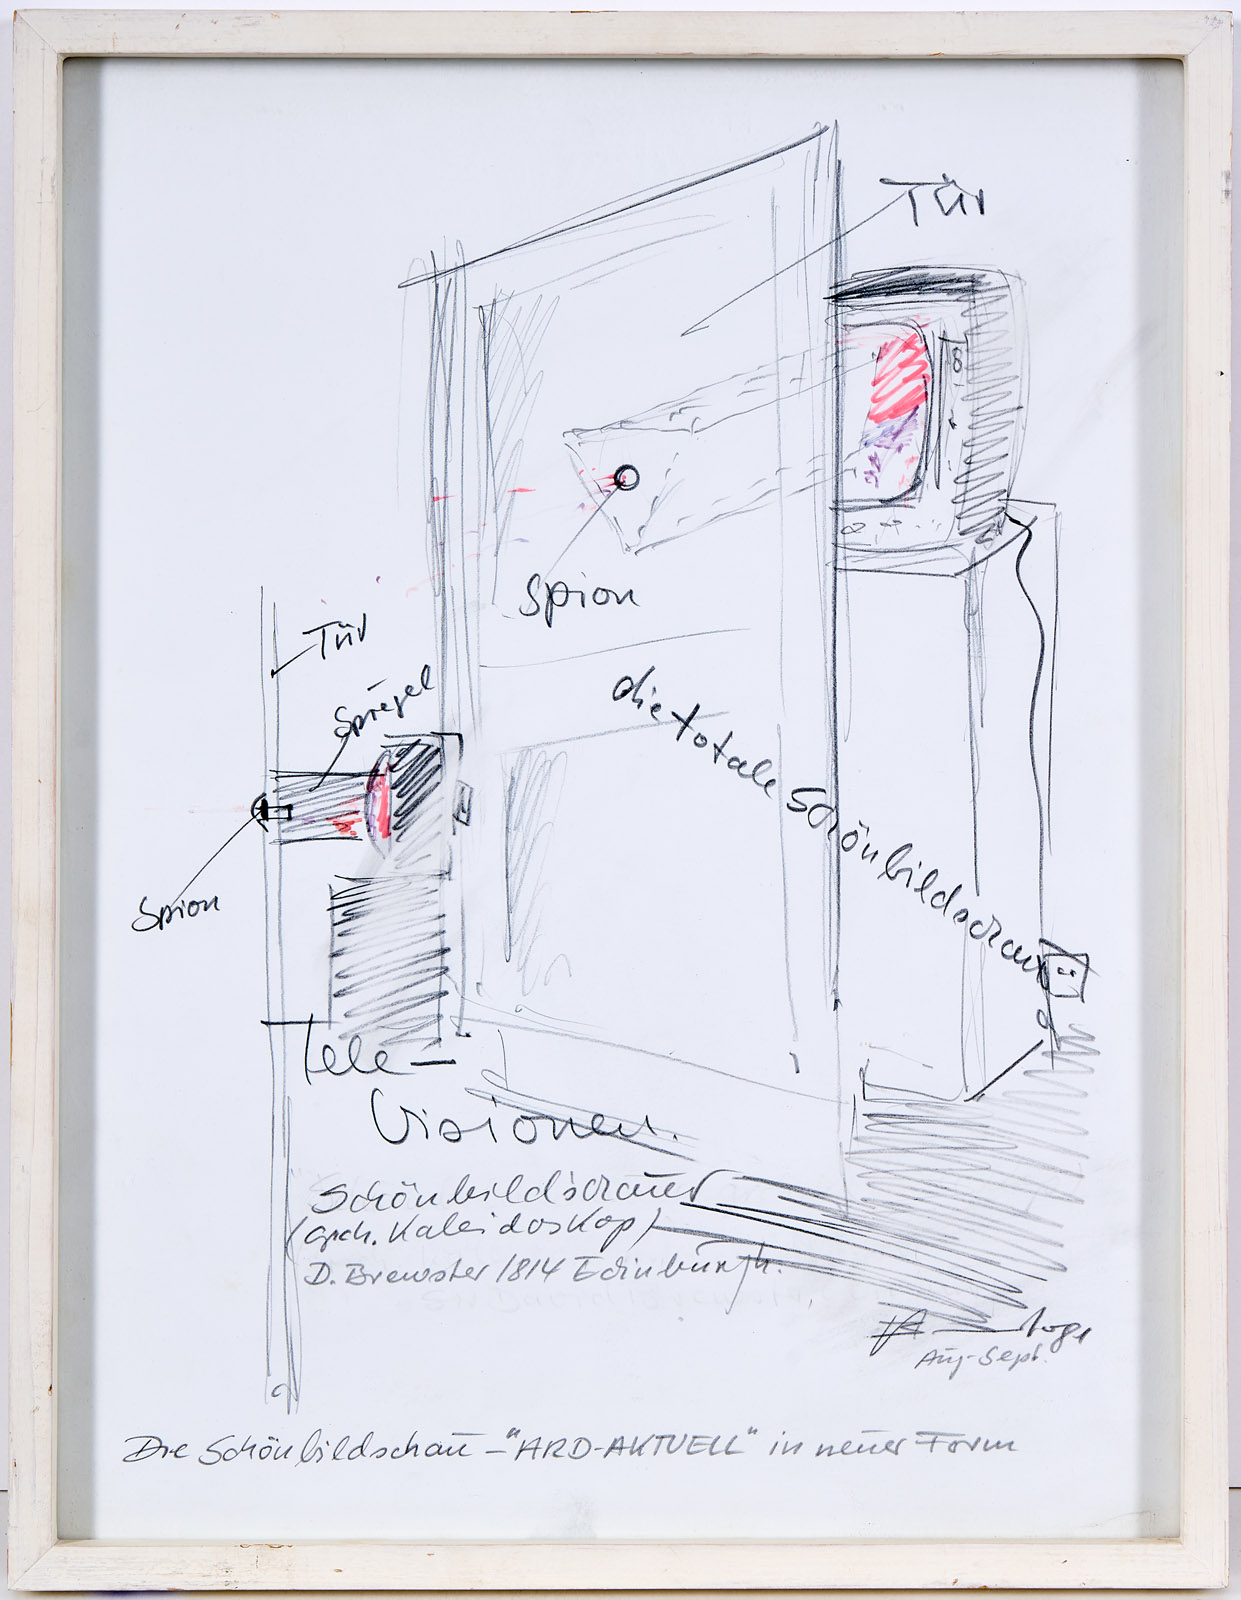 Tür
Spion
Tür
Spiegel
die totale Schönbildschau
Spion
Tele-
Visionen.
Schönbildschauer
(grch. Kaleidoskop)
D. Brewster 1814 Edinburgh.
Aug-Sept.
Die Schönbildschau - "ARD-AKTUELL" in neuer Form